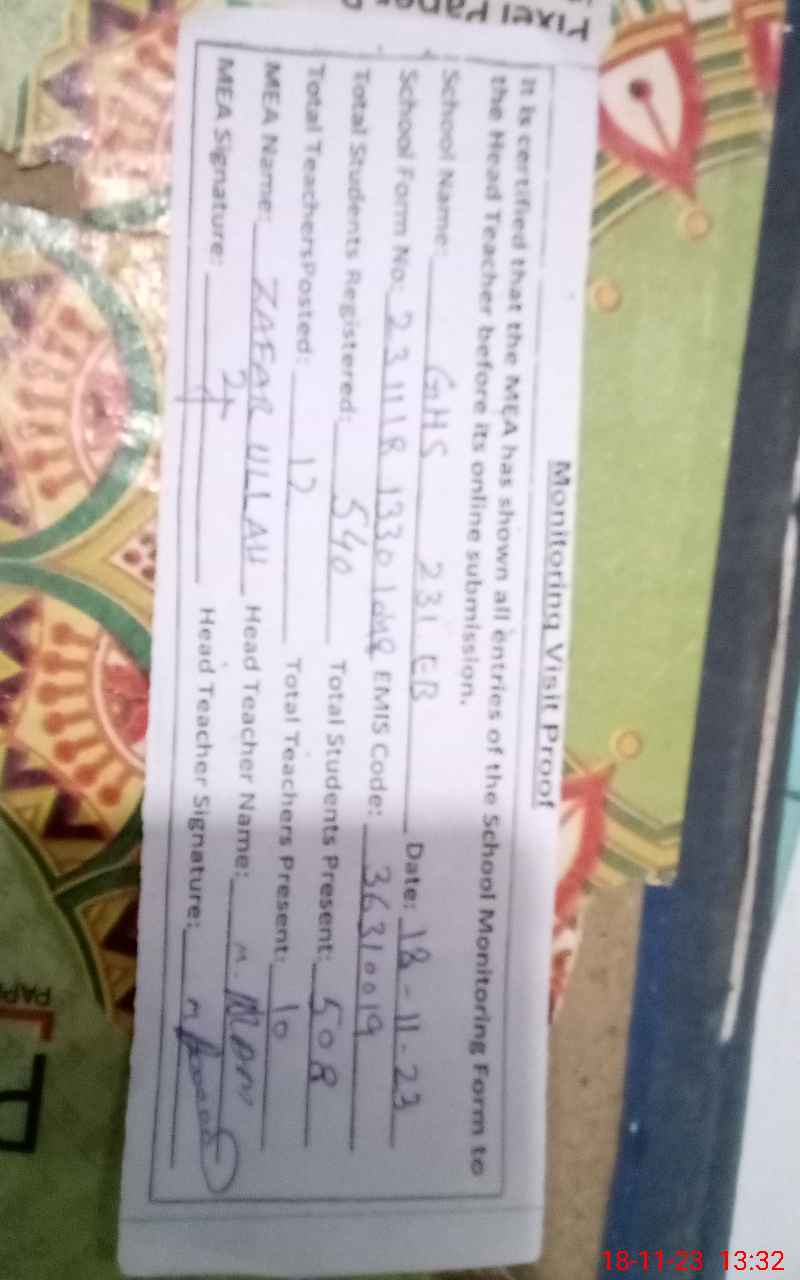 Monitoring Visit Proof
It is certified that the MEA has shown all entries of the School Monitoring Form to
the Head Teacher before its online submission.
School Name: GHS 231 EB Date: 18-11-23
School Form No: EMIS Code: 36310019
Total Students Registered: 540 Total Students Present: 508
Total Teachers Posted: Total Teachers Present: 10
MEA Name: ZAFAR ULLAH Head Teacher Name:
MEA Signature: Head Teacher Signature:
18-11-23 13:32